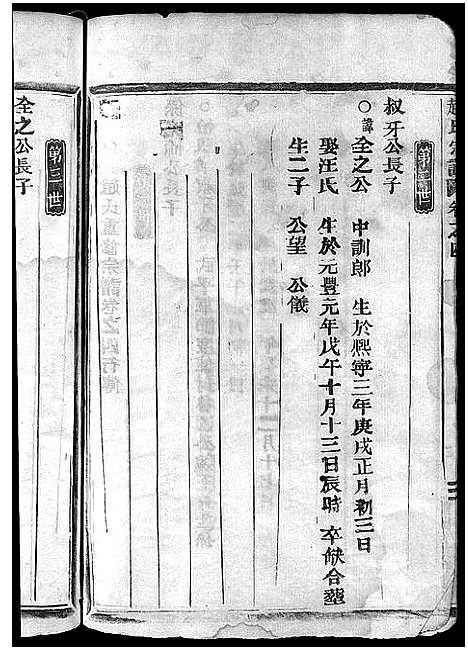 趙氏宗譜卷之四
叔牙公長子
第二世
○諱全之公 中訓郎 生於熙寧三年庚戌正月初三日
娶汪氏 生於元豐元年戊午十月十三日辰時 卒缺合塟
生二子 公望 公儀
全之公長子
第三世